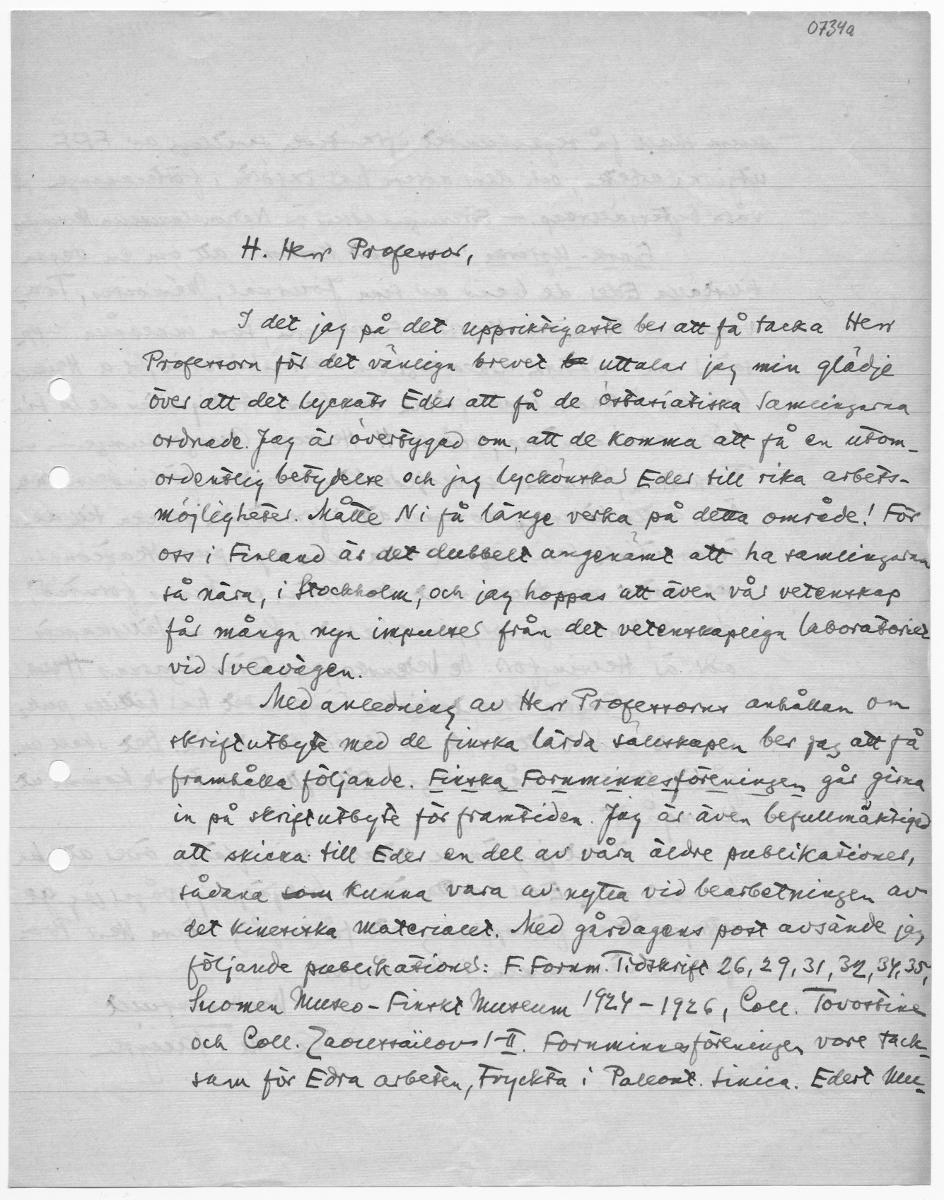 0734a
H. Herr Professor,
I det jag på det uppriktigaste ber att få tacka Herr
Professorn för det vänliga brevet uttalar jag min glädje
över att det lyckats Eder att få de östasiatiska samlingarna
ordnade. Jag är övertygad om, att de komma att få en utom-
ordentlig betydelse och jag lyckönskar Eder till rika arbets-
möjligheter. Måtte Ni få länge verka på detta område! För
oss i Finland är det dubbelt angenämt att ha samlingarna
så nära, i Stockholm, och jag hoppas att även vår vetenskap
får många nya impulser från det vetenskapliga laboratoriet
vid Sveavägen.
Med anledning av Herr Professorns anhållan om
skriftutbyte med de finska lärda sällskapen ber jag att få
framhålla följande. Finska Fornminnesföreningen går gärna
in på skriftutbyte för framtiden. Jag är även befullmäktigad
att skicka till Eder en del av våra äldre publikationer,
sådana som kunna vara av nytta vid bearbetningen av
det kinesiska materialet. Med gårdagens post avsände jag
följande publikationer: F. Fornm. Tidskrift 26, 29, 31, 32, 34, 35,
Suomen Museo - Finskt Museum 1924-1926, Coll. Tovostine
och Coll. Zaoussaïlov I-II. Fornminnesföreningen vore tack-
sam för Edra arbeten, tryckta i Paleont. Sinica. Edert Mu-